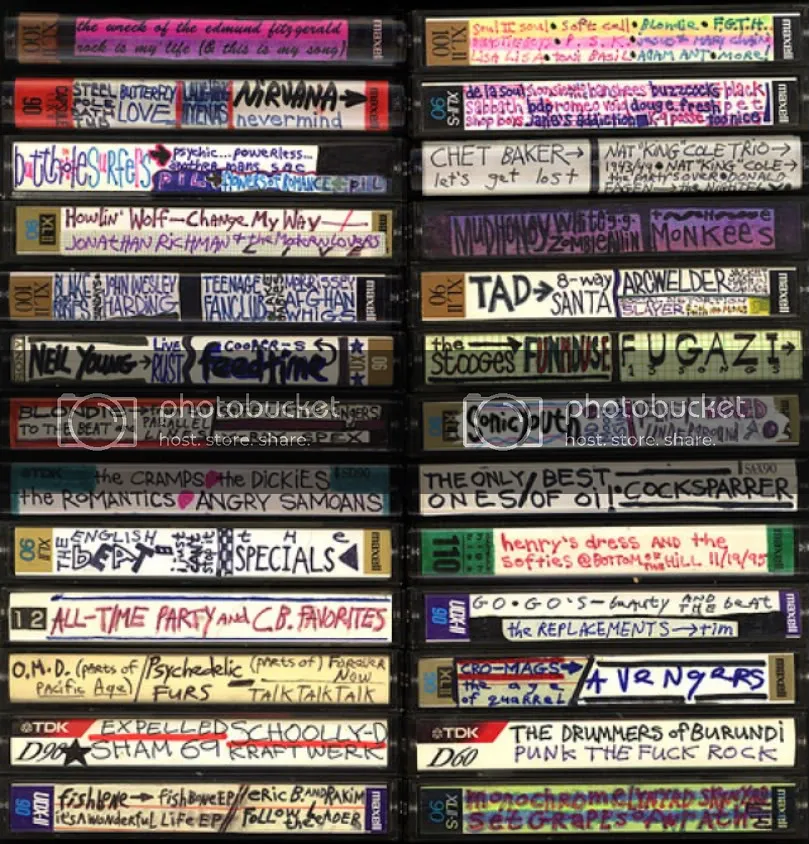 the wreck of the edmund fitzgerald
rock is my life (& this is my song)
XLII 100
maxell
STEEL
BUTTERFLY
LOVE
NIRVANA
nevermind
90
maxell
butthole surfers
psychic...powerless...
another mans sac
PiL
HOWLIN' WOLF—CHANGE MY WAY
JONATHAN RICHMAN & the MODERN LOVERS
XLII 90
BLAKE BABIES
JOHN WESLEY HARDING
TEENAGE FANCLUB
MORRISSEY
AFGHAN WHIGS
XLII 100
maxell
NEIL YOUNG
LIVE RUST
COOPER-S
feedtime
SONY
90
BLONDIE
TO THE BEAT
PARALLEL
photobucket
host. store. share.
TDK
SD90
the CRAMPS the DICKIES
the ROMANTICS ANGRY SAMOANS
90
THE ENGLISH BEAT
i just can't stop it
the SPECIALS
maxell
12 ALL-TIME PARTY AND C.B. FAVORITES
O.M.D. (PARTS OF PACIFIC AGE)
Psychedelic FURS
(PARTS OF) FOREVER NOW
TALK TALK TALK
TDK D90
EXPELLED SCHOOLLY-D
SHAM 69 KRAFTWERK
UDXII 90
fishbone → fishbone EP
it's A wonderful Life EP
eric B. AND RAKIM
FOLLOW the LEADER
maxell
soul II soul • soft cell • Blondie • F.G.T.H.
BEASTIE BOYS • P.S.K. • JESUS & MARY CHAIN
LISA LISA • TONI BASIL • ADAM ANT • MORE!
XLII 100
maxell
de la soul siouxsie & the banshees buzzcocks black
sabbath bdp romeo void doug e. fresh pet
shop boys jane's addiction K-9 posse too nice
XLII-S 90
maxell
CHET BAKER→
let's get lost
NAT "KING" COLE TRIO→
1943/49 • NAT "KING" COLE→
the PARTY'S OVER • DONALD
FAGEN → the NIGHTFLY
XLII 90
maxell
MUDHONEY WHITE ZOMBIE
g.g. Allin
the MONKEES
XLII 90
TAD→ 8-way SANTA
ARCWELDER
SLAYER
maxell
the STOOGES FUNHOUSE
FUGAZI→
13 SONGS
Sonic youth
UNDERGROUND
photobucket
host. store. share.
SAX90
THE ONLY/BEST
ONES/OF Oi!•COCKSPARRER
110
henry's dress AND the
softies @ BOTTOM OF THE HILL 11/19/95
maxell
UDXII 90
GO•GO'S—beauty AND THE beAt
the REPLACEMENTS→tim
maxell
90
CRO-MAGS
the age of quarrel
AVENGERS
maxell
TDK D60
THE DRUMMERS of BURUNDI
PUNK THE FUCK ROCK
XLII-S 90
monochrome LYNYRD SKYNYRD
set GRAPES of WRATH
maxell